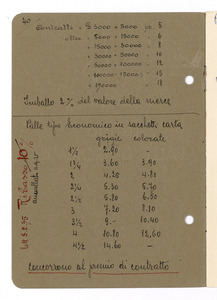 40
Contratti £ 3000 - 5000 £ 5
oltre £ 5000 - 15000 - 6
15000 - 30000 - 8
30000 - 50000 - 10
50000 - 100000 - 12
100000 - 150000 - 15
150000 - 18
Imballo 2% del valore della merce
Palle tipo Economico in sacchetti carta
grigie colorate
1½ 2.80 -
1¾ 3.60 3.90
2 4.20 4.80
2¼ 5.30 5.70
2½ 6.- 6.50
3 7.20 8.10
3½ 9.- 10.40
4 10.80 12.60
4½ 14.60 -
Ribasso 10%
Concorrono al premio di contratto